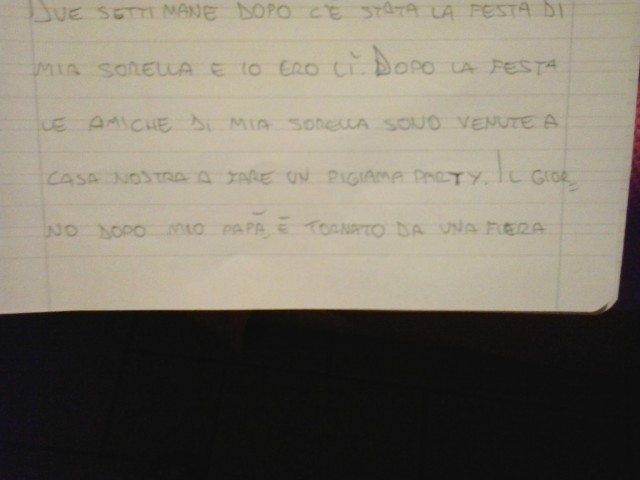 DUE SETTIMANE DOPO C'E STATA LA FESTA DI
MIA SORELLA E IO ERO LÌ. DOPO LA FESTA
LE AMICHE DI MIA SORELLA SONO VENUTE A
CASA NOSTRA A FARE UN PIGIAMA PARTY. IL GIOR=
NO DOPO MIO PAPÀ È TORNATO DA UNA FIERA